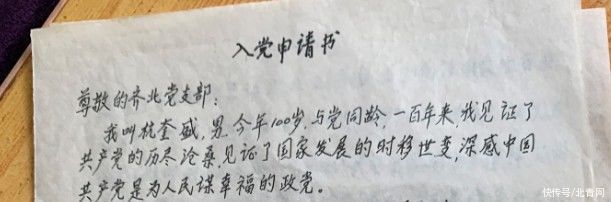 入党申请书
尊敬的齐北党支部：
我叫杭奎盛，男，今年100岁，与党同龄，一百年来，我见证了
共产党的历尽沧桑，见证了国家发展的时移世变，深感中国
共产党是为人民谋幸福的政党。
快传号/北青网